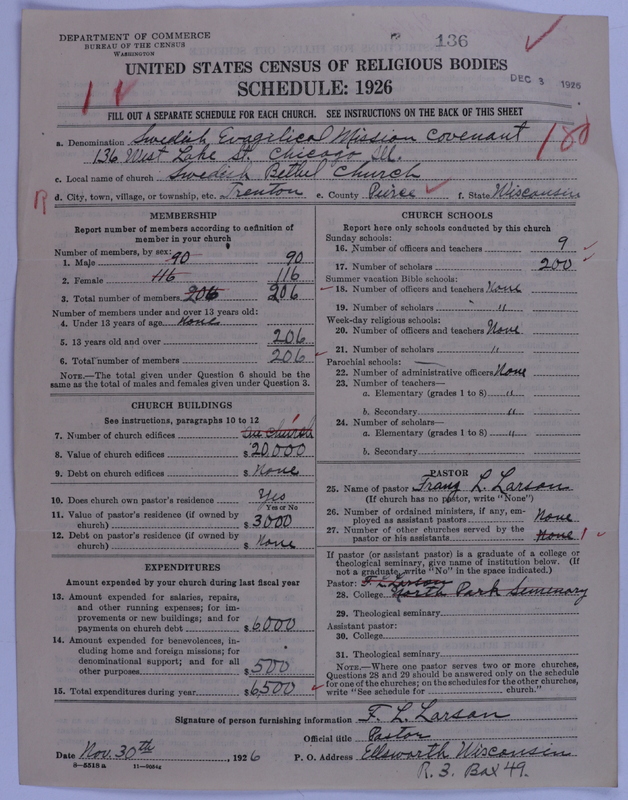 DEPARTMENT OF COMMERCE
BUREAU OF THE CENSUS
WASHINGTON
136
UNITED STATES CENSUS OF RELIGIOUS BODIES
DEC 3 1926
SCHEDULE: 1926
FILL OUT A SEPARATE SCHEDULE FOR EACH CHURCH. SEE INSTRUCTIONS ON THE BACK OF THIS SHEET
a. Denomination Swedish Evagelical Mission Covenant
136 West Lake St. Chicago Ill.
c. Local name of church Swedish Bethel Church
d. City, town, village, or township, etc. Trenton e. County Pierce f. State Wisconsin
MEMBERSHIP
Report number of members according to definition of member in your church
Number of members, by sex:
1. Male 90 90
2. Female 116 116
3. Total number of members 206 206
Number of members under and over 13 years old:
4. Under 13 years of age None
5. 13 years old and over 206
6. Total number of members 206
NOTE.—The total given under Question 6 should be
same as the total of males and females given under Question 3.
CHURCH BUILDINGS
See instructions, paragraphs 10 to 12
7. Number of church edifices One Church
8. Value of church edifices $ 20,000
9. Debt on church edifices $ None
10. Does church own pastor's residence Yes
Yes or No
11. Value of pastor's residence (if owned by
church) $ 3000
12. Debt on pastor's residence (if owned by
church) $ None
EXPENDITURES
Amount expended by your church during last fiscal year
13. Amount expended for salaries, repairs,
and other running expenses; for im-
provements or new buildings; and for
payments on church debt $ 6000
14. Amount expended for benevolences, in-
cluding home and foreign missions; for
denominational support; and for all
other purposes $ 500
15. Total expenditures during year $ 6,500
CHURCH SCHOOLS
Report here only schools conducted by this church
Sunday schools:
16. Number of officers and teachers 9
17. Number of scholars 200
Summer vacation Bible schools:
18. Number of officers and teachers None
19. Number of scholars "
Week-day religious schools:
20. Number of officers and teachers None
21. Number of scholars "
Parochial schools:
22. Number of administrative officers None
23. Number of teachers—
a. Elementary (grades 1 to 8) "
b. Secondary "
24. Number of scholars—
a. Elementary (grades 1 to 8) "
b. Secondary
PASTOR
25. Name of pastor Franz L. Larson
(If church has no pastor, write "None")
26. Number of ordained ministers, if any, em-
ployed as assistant pastors None
27. Number of other churches served by the
pastor or his assistants None 1
If pastor (or assistant pastor) is a graduate of a college or
theological seminary, give name of institution below. (If
not a graduate, write "No" in the space indicated.)
Pastor: F. L. Larson
28. College North Park Semenary
29. Theological seminary
Assistant pastor:
30. College
31. Theological seminary
NOTE.—Where one pastor serves two or more churches,
Questions 28 and 29 should be answered only on the schedule
for one of the churches; on the schedules for the other churches,
write "See schedule for church."
Signature of person furnishing information F. L. Larson
Official title Pastor
Date Nov. 30th, 1926 P. O. Address Ellsworth Wisconsin
8—5518a 11—9084
R. 3. Box 49.